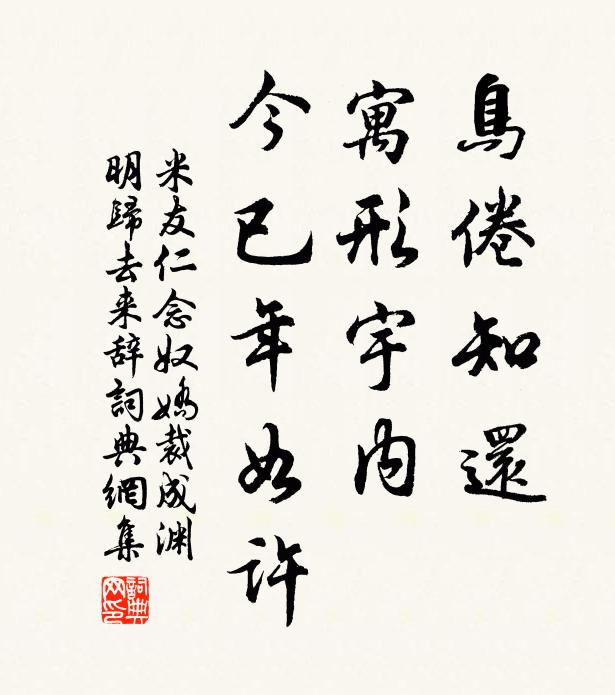 鳥倦知還
寓形宇内
今已年如許
米友仁念奴嬌裁成淵
明歸去来辞詞典網集
詞典
网印